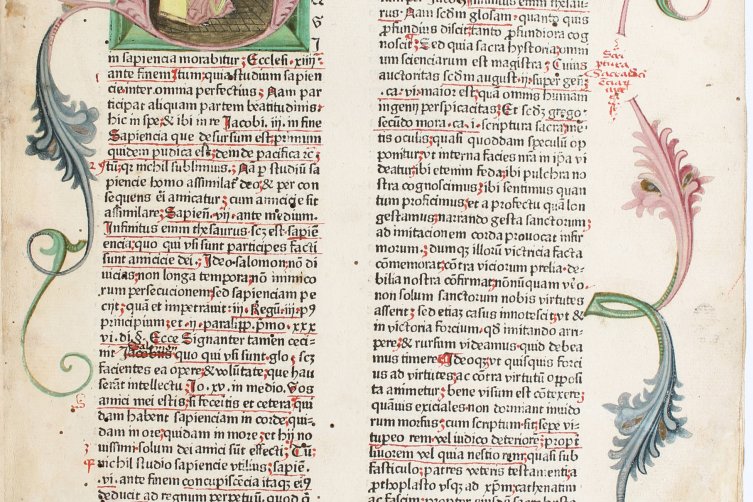 in sapiencia morabitur; Ecclesi. xiiij.
ante finem Itum qua studium sapien
cie inter omnia perfectius; Nam par
ticipat aliquam partem beatitudinis
hic in spe; & ibi in re Jacobi. iij. in fine
Sapiencia que desursum est; primum
quidem pudica est; deinde pacifica &c;
Itum qr nichil sublimius; Na p studiū sa
piencie homo assimilat deo; & per con
sequens ei amicatur; cum amicicie sit
assimilare; Sapien. vij. ante medium.
Infinitus enim thesaurus scz est sapiē
encia; quo qui vsi sunt participes facti
sunt amicicie dei; Ideo salomon nō di
uicias; non longa tempora; nō inimico
rum persecucionem sed sapienciam pe
cijt; quā et impetrauit iij. Regū iij. p9
principium; et ij. paralipp. pmo. xxx
vi. di. §. Ecce Signanter tamen ceci-
nit quo qui vsi sunt glo; scz
facientes ea opere; & volūtate; que hau
serāt intellectu Jo. xv. in medio. Vos
amici mei estis; si feceritis et cetera; qui
dam habent sapienciam in corde; qui-
dam in ore; quidam in more; et hij no
uissimi solum dei amici sūt effecti; Tū
nichil studio sapiencie vtilius; sapiē.
vi. ante finem concupiscencia itaqz ei9
deducit ad regnum perpetuū quod
rus. Nam sedm glosam; quanto quis
pfundius discit; tanto pfundiora cog
noscit; Sed quia sacra hystoria omni
um scienciarum est magistra; Cuius
auctoritas sedm august. ij. super gen.
ca. vi. maior est; qua omnis humani
ingenij perspicacitas; Et sedz grego
secūdo mora. ca. i. scriptura sacra mē-
tis oculis; quasi quoddam speculū op
ponitur; vt interna facies nra in ipa vi
deatur; ibi etenim feda; ibi pulchra no
stra cognoscimus; ibi sentimus quan
tum proficimus; et a profectu quā lon
ge stamus; narrando gesta sanctorum
ad imitacionem corda prouocat infir
morum; dumqz illorū victricia facta
cōmemorat; cōtra viciorum prelia de-
bilia nostra cōfirmat; nōnūquam vero
non solum sanctorum nobis virtutes
asserit; sed etiā casus innotescit; vt &
in victoria forcium qd imitando arri-
pere; & rursum videamus quid debea
mus timere; Ideoqz vt quisquis forci
us ad virtutes; ac cōtra virtutū opposi
ta animetur; bene visum est cōtexere;
quāuis exiciales non dormant inuido
rum morsus; cum scriptum sit; sepe vi-
tupero rem vel iudico deteriorē; propter
liuorem vel quia nescio rem; quasi sub
fasticulo; patres veteris testamenti; a
prothoplasto vsqz ad xpm; cathenatim